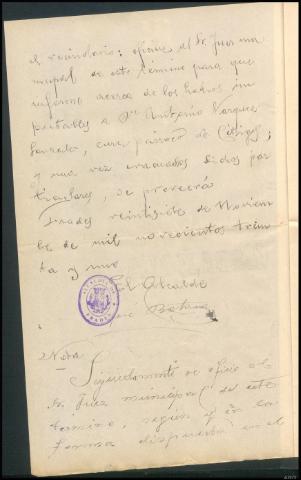 el vecindario: ofíciese al Sr. Juez mu
nicipal de este término para que
informe acerca de los hechos im
putables a Dn Antonio Vazquez
cura párroco de
y una vez evacuados dichos par
ticulares, se proveerá
Prades veintisiete de Noviem
bre de mil novecientos trein
ta y uno
El Alcalde
Nota
Seguidamente se ofició al
Sr. Juez municipal de este
término, según y en la
forma dispuesta en el